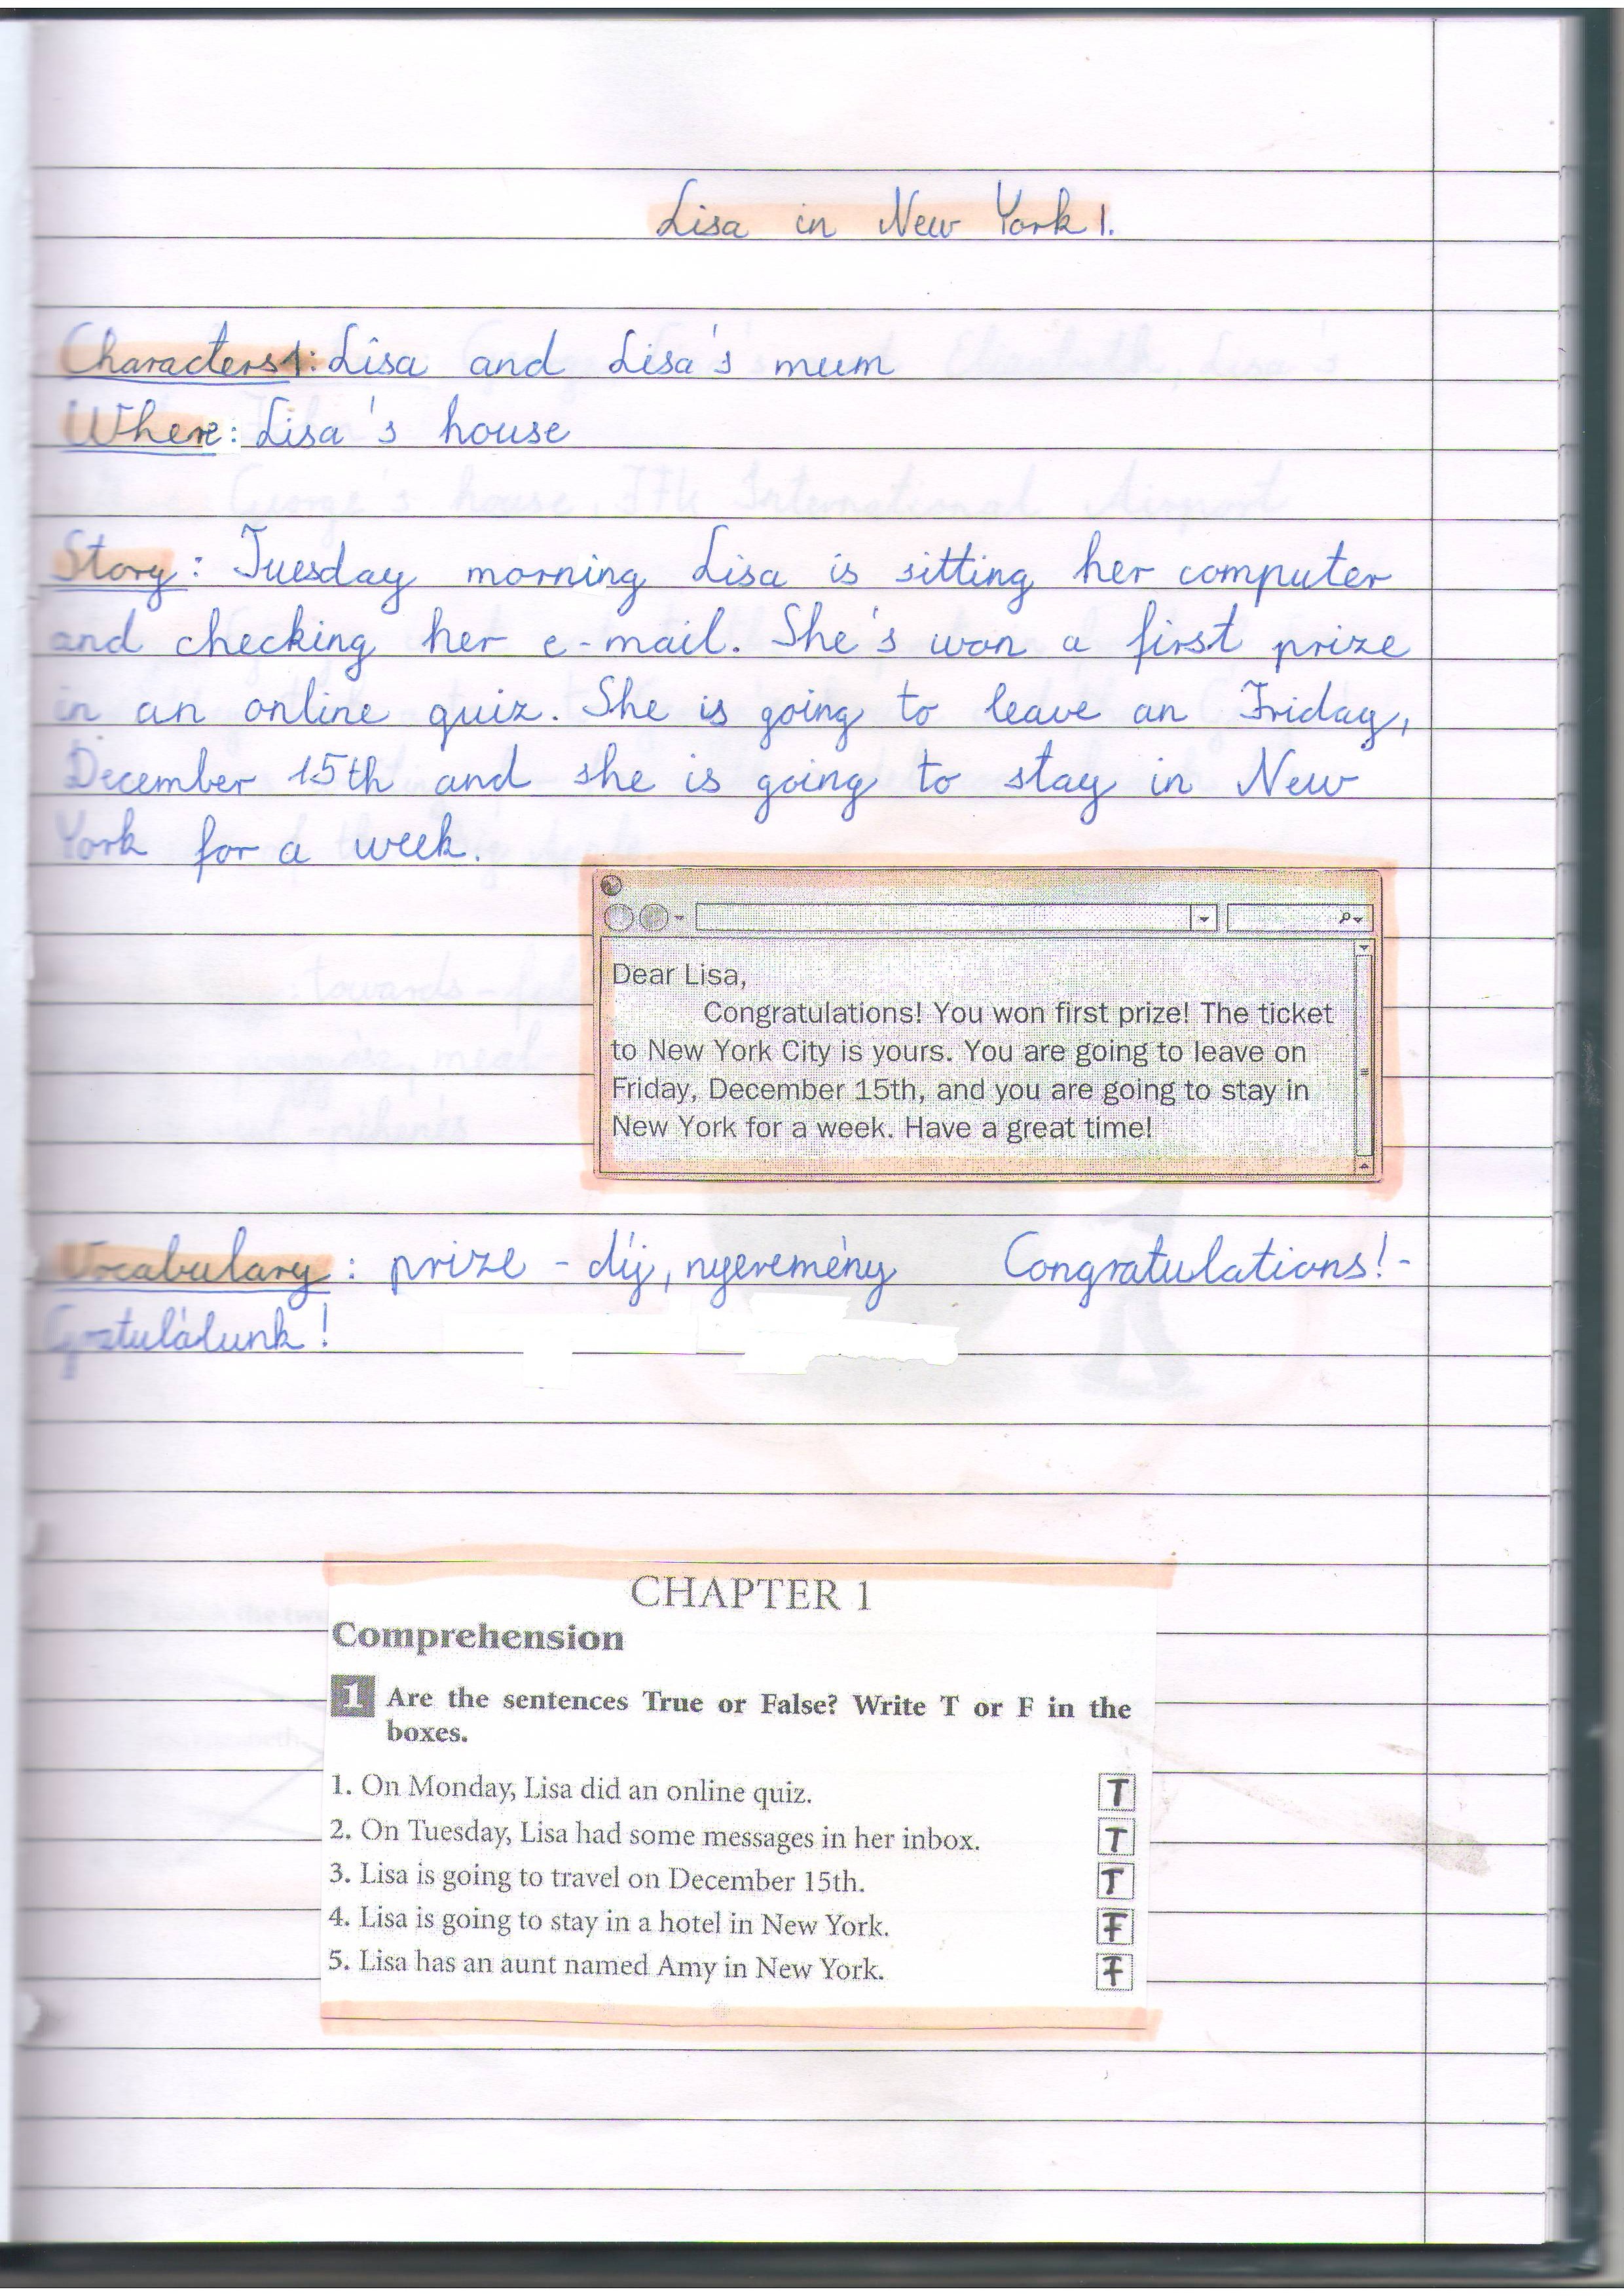 Lisa in New York 1.
Characters 1: Lisa and Lisa's mum
Where: Lisa's house
Story: Tuesday morning Lisa is sitting her computer
and checking her e-mail. She's won a first prize
in an online quiz. She is going to leave an Friday,
December 15th and she is going to stay in New
York for a week.
Dear Lisa,
Congratulations! You won first prize! The ticket
to New York City is yours. You are going to leave on
Friday, December 15th, and you are going to stay in
New York for a week. Have a great time!
Vocabulary: prize - díj, nyeremény Congratulations! -
Gratulálunk!
CHAPTER 1
Comprehension
1 Are the sentences True or False? Write T or F in the
boxes.
1. On Monday, Lisa did an online quiz. T
2. On Tuesday, Lisa had some messages in her inbox. T
3. Lisa is going to travel on December 15th. T
4. Lisa is going to stay in a hotel in New York. F
5. Lisa has an aunt named Amy in New York. F